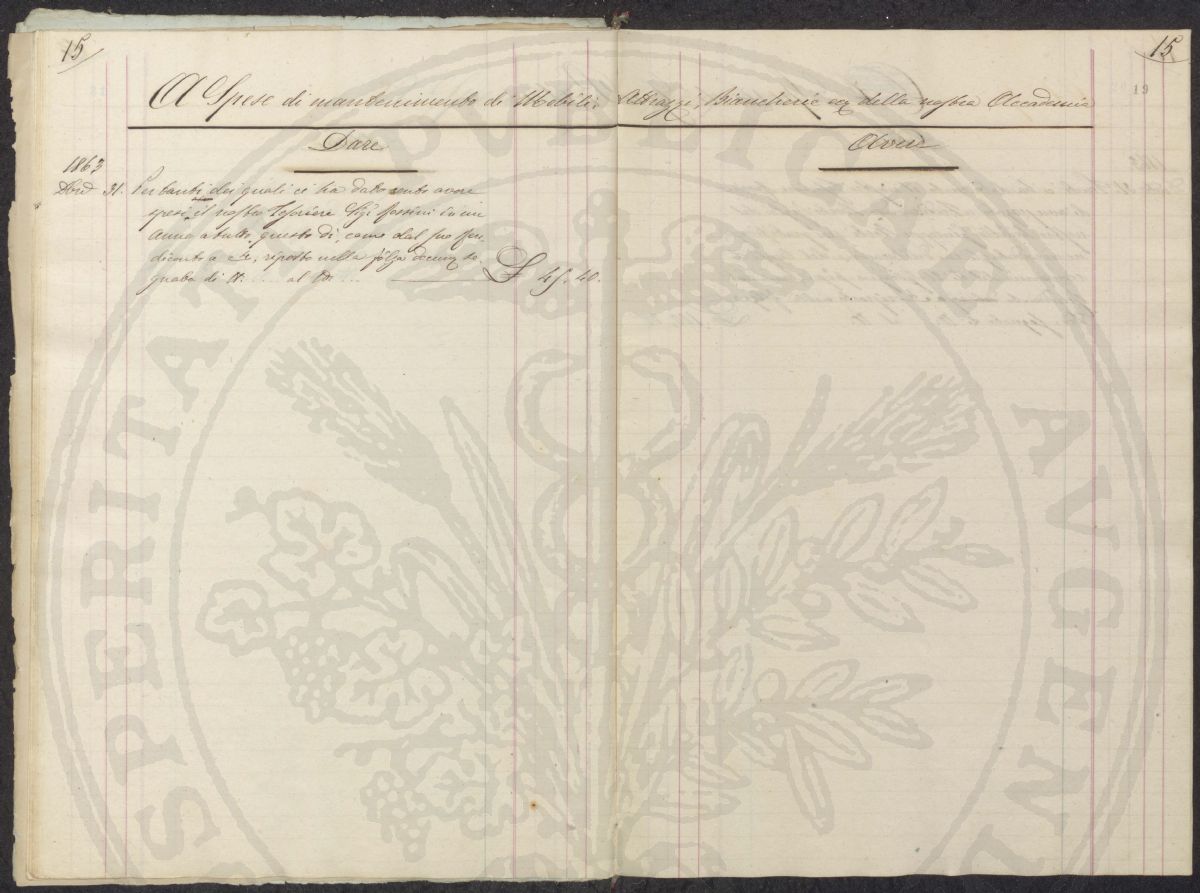 15
15
A Spese di mantenimento di Mobili, Attrezzi, Biancherie ecc della nostra Accademia
Dare
Avere
1863
Xbre 31. Per tanti dei quali ci ha dato conto avere
spesi il nostro Tesoriere Sigr in un
anno a tutto questo dì, come dal suo Ren,
diconto a c, riposto nella filza se,
gnata di N. ... al N. ...
£ 45. 40.
SPERITAT PUBLICAE AUGENDAE